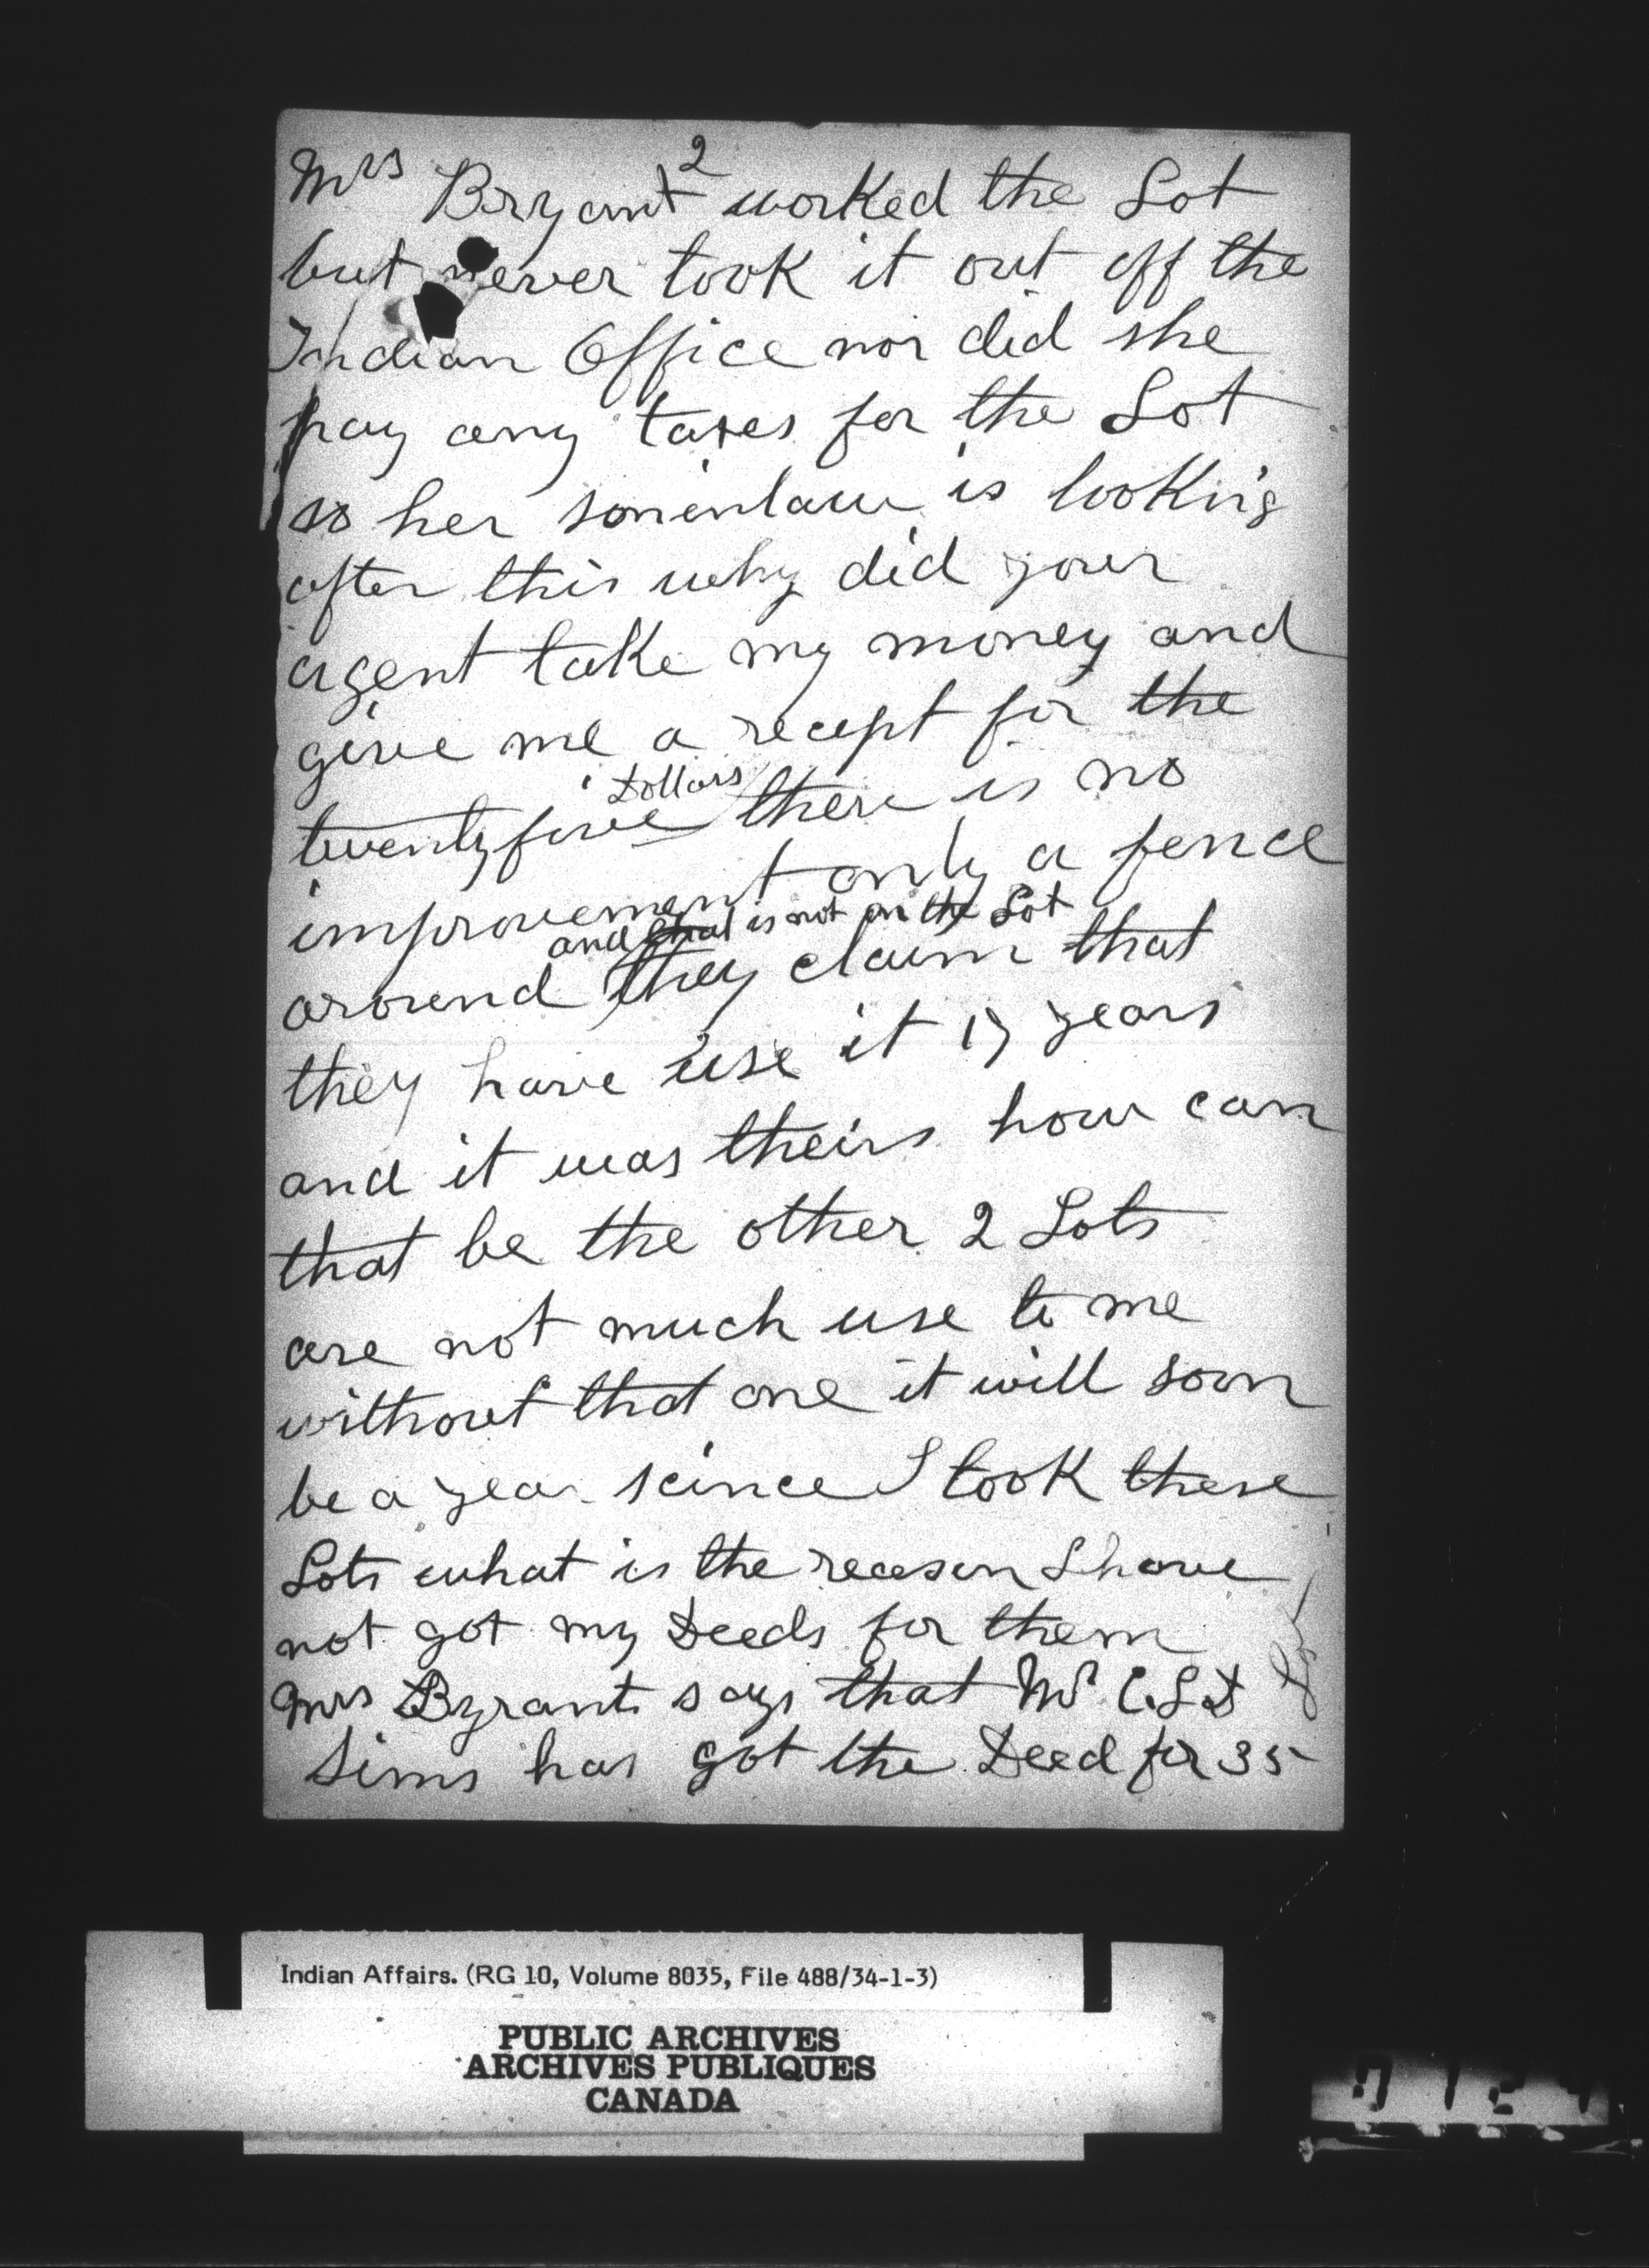 2
Mrs Bryant worked the Lot
but never took it out off the
Indian Office nor did she
pay any taxes for the Lot
so her soninlaw is looking
after this why did your
agent take my money and
give me a recept for the
Dollars
twentyfive there is no
improvement only a fence
and that is not on the Lot
around they claim that
they have use it 17 years
and it was theirs how can
that be the other 2 Lots
are not much use to me
without that one it will soon
be a year scince I took these
Lots what is the reason I have
not got my Deeds for them
Mrs Byrant says that Mr C. L D
Sims has got the Deed for 35
Lot
Indian Affairs. (RG 10, Volume 8035, File 488/34-1-3)
PUBLIC ARCHIVES
ARCHIVES PUBLIQUES
CANADA